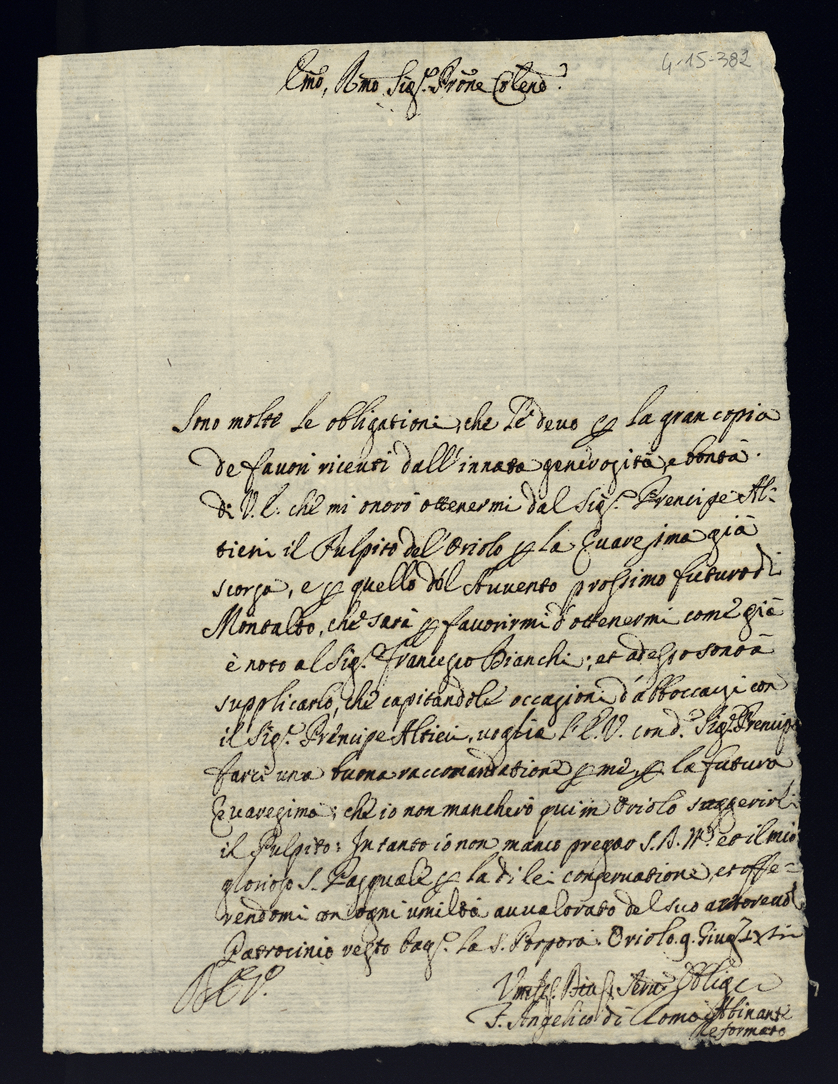 4-15-382
Emo, Rmo Sigr. Prone Colendo
Sono molte le obligationi, che Le devo p la gran copia
de favori ricevuti dall'innata generosità, e bontà
di V. E. che mi onorò ottenermi dal Sigr. Prencipe Al-
tieri il Pulpito dell'Oriolo p la Quaresima già
scorsa, e p quello dell'Avvento prossimo futuro di
Montalto, che sarà p favorirmi d'ottenermi come già
è noto al Sigr. Francesco Bianchi; et adesso sono à
supplicarlo, che capitandole occasioni d'abboccarsi con
il Sigr. Prencipe Altieri, voglia l'E. V. con do. Sigr. Prencipe
farci una buona raccomandatione p me, p la futura
Quaresima; che io non mancherò qui in Oriolo
il Pulpito: In tanto io non manco pregare S. D. Mtà. et il mio
glorioso S. Pasquale p la di lei conservatione, et offe-
rendomi con ogni umiltà avvalorato del suo autorevol
Patrocinio resto la S. Porpora. Oriolo 9. Giug.
Umiliss. Obliga
F. Angelico di Roma
Reformato